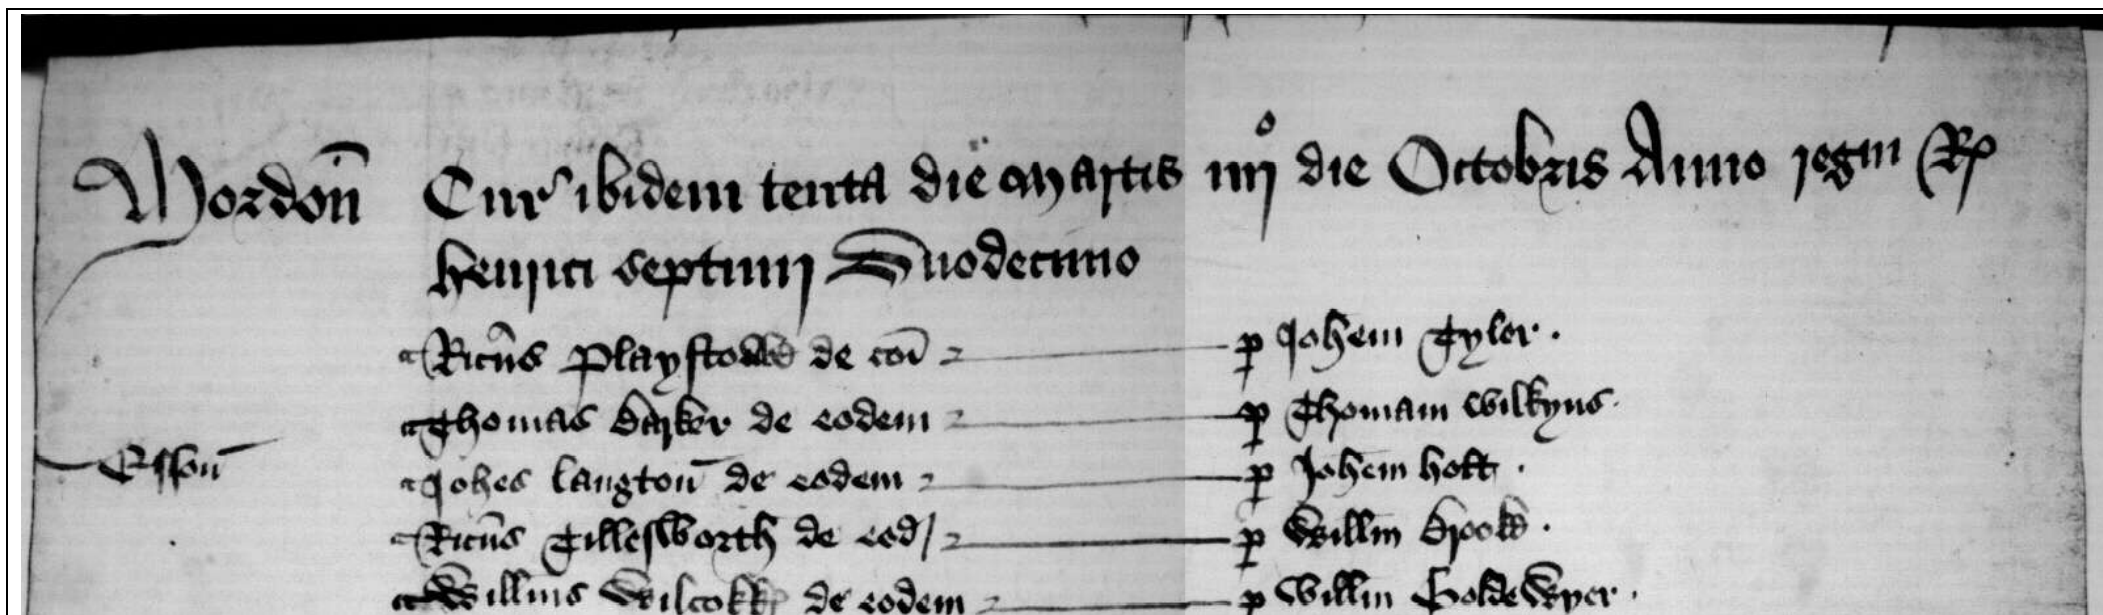 Mordon̄ Cur' ibidem tenta die Martis iiijº die Octobris Anno regni R
henrici septimi Duodecimo
Ricūs Playstowe de cōi p Johem Tyler
Thomas Barker de eodem p Thomam Wilkyns
Esson̄ Johes Langton̄ de eodem p Johem holt
Ricūs Tillesworth de eod p Willm Brook
Willms Wilcokk de eodem p Willm Goldewyer